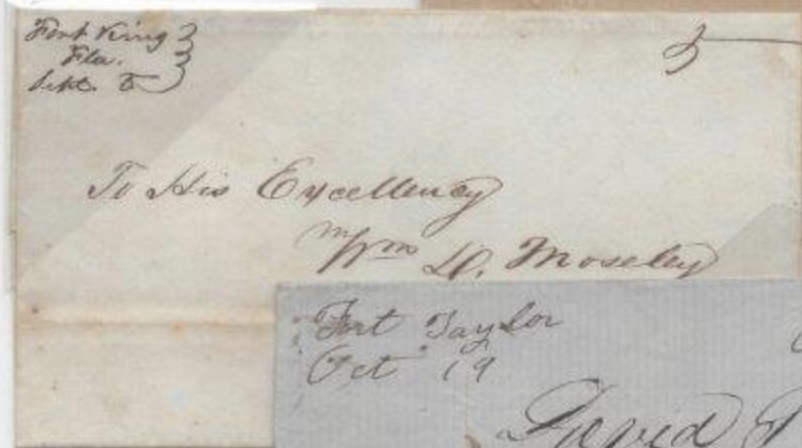 Fort King
Fla.
Sept. 5
To His Excellency
Wm D. Moseley
Fort Taylor
Oct 19
David